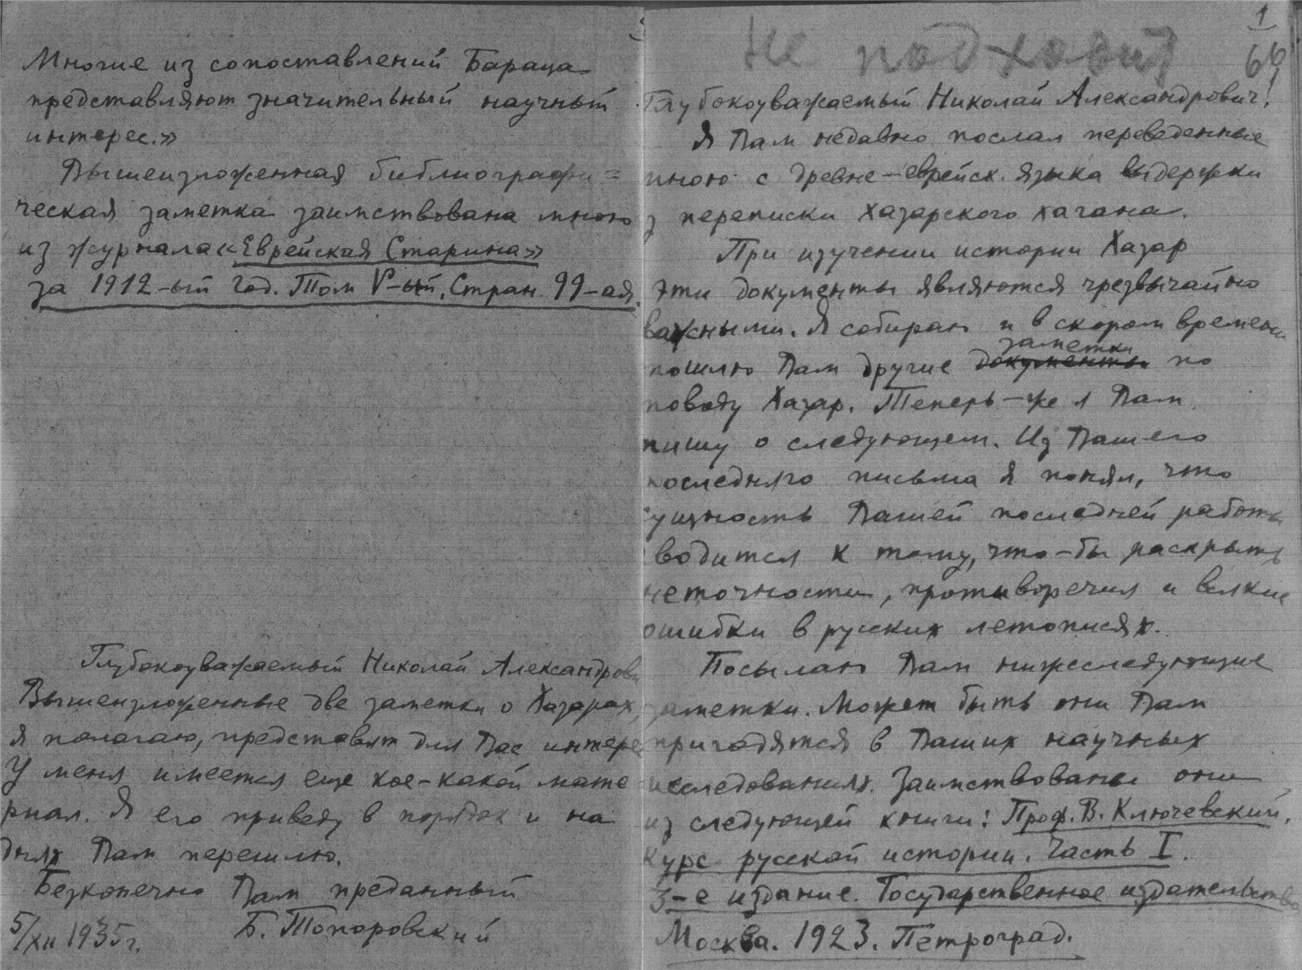 Многие из сопоставлений Бараца
представляют значительный научный
интерес.»
Вышеизложенная библиографи=
ческая заметка заимствована мною
из журнала «Еврейская Старина»
за 1912-ый год. Том V-ый, Стран. 99-ая.
Глубокоуважаемый Николай Александрови
Вышеизложенные две заметки о Хазарах,
я полагаю, представят для Вас интере
У меня имеется еще кое-какой мате-
риал. Я его приведу в порядок и на
днях Вам перешлю.
Безконечно Вам преданный
5/XII 1935 г. Б. Топоровский
Не подходит
1
66
Глубокоуважаемый Николай Александрович!
Я Вам недавно послал переведенные
мною с древне-еврейск. языка выдержки
з переписки хазарского хагана.
При изучении истории Хазар
эти документы являются чрезвычайно
важными. Я собираю и в скором времени
заметки
пошлю Вам другие документы по
поводу Хазар. Теперь-же я Вам
пишу о следующем. Из Вашего
последняго письма я понял, что
сущность Вашей последней работы
водится к тому, что-бы раскрыть
неточности, противоречия и всякие
ошибки в русских летописях.
Посылаю Вам нижеследующие
заметки. Может быть они Вам
пригодятся в Ваших научных
исследованиях. Заимствованы они
из следующей книги: Проф. В. Ключевский.
Курс русской истории. Часть I.
3-е издание. Государственное издательство
Москва. 1923. Петроград.